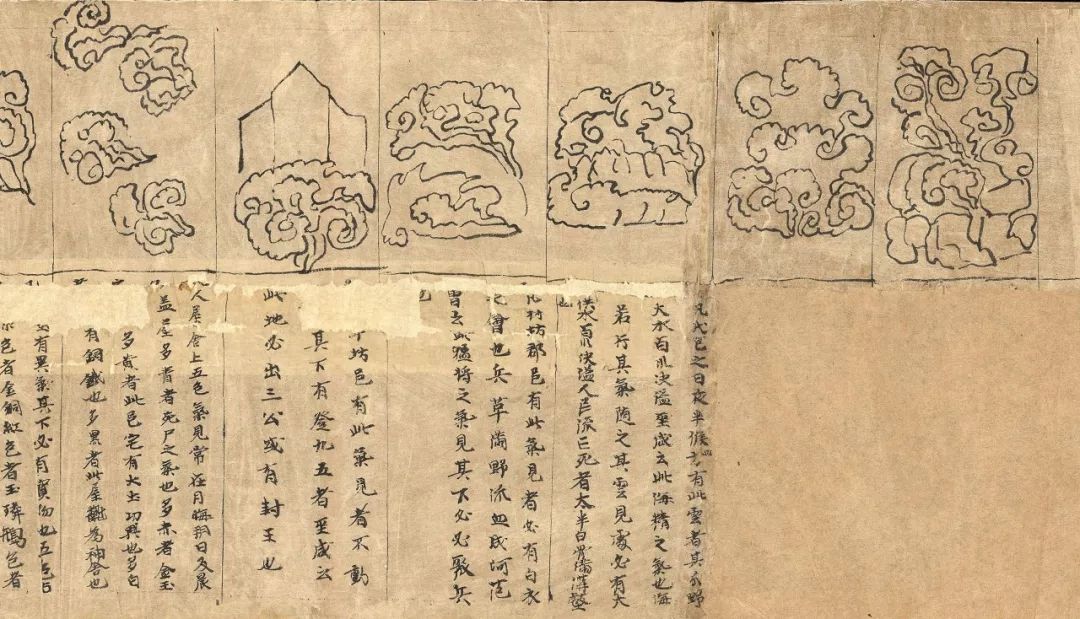 之日夜半候有此雲者其分野
大水百川決溢至咸云此海精之氣也海
若行其氣隨之其雲見處必有大
洪水百川決溢人民流亡死者太半白骨滿溝壑
也
凡村坊郡邑有此氣見者必有白衣
之會也兵革滿野流血成河
曾去此猛將之氣見其下必必聚兵
坊邑有此氣見者不動
其下有登九五者至咸云
此地必出三公或有封王也
凡人屋舍上五色氣見常在月晦朔日及晨
屋多青者死尸之氣也多赤者金玉
多黃者此邑宅有大土功興也多白
有銅鐵也多黑者此屋為神也
有異氣其下必有寶物也五色
色者金銅紅色者玉色者